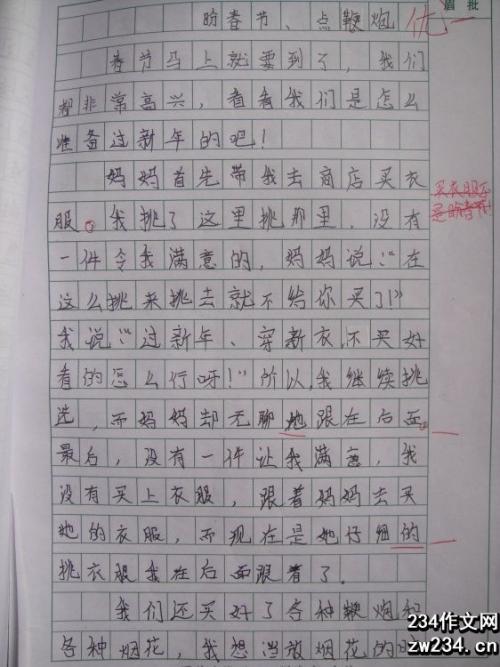 盼春节、点鞭炮 优一
眉批
春节马上就要到了，我们
都非常高兴，看看我们是怎么
准备过新年的吧！
妈妈首先带我去商店买衣
服。我挑了这里挑那里，没有
买衣服不
是盼春节！
一件令我满意的，妈妈说：“在
这么挑来挑去就不给你买了！”
我说：“过新年、穿新衣，不买好
看的怎么行呀！”所以，我继续挑
选，而妈妈却无聊地跟在后面。
最后，没有一件让我满意，我
没有买上衣服，跟着妈妈去买
她的衣服，而现在是她仔细的
挑衣服我在后面跟着了。
我们还买好了各种鞭炮和
各种烟花，我想当放烟花的时
234作文网
zw234.cn